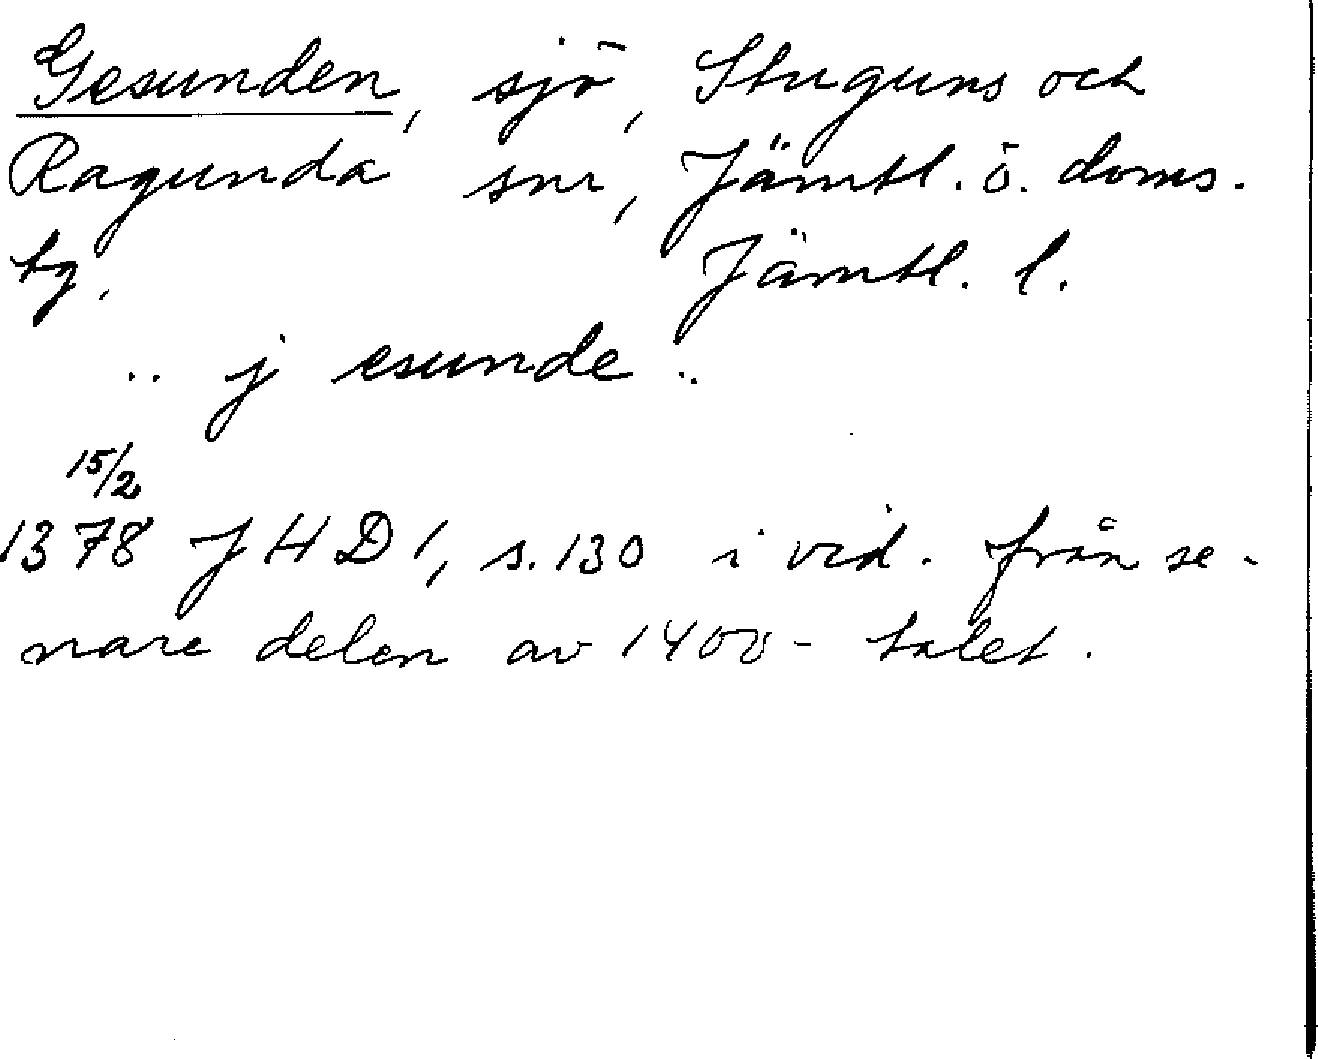 Gesunden, sjö, Stuguns och
Ragunda snr, Jämtl. ö. doms.
tg. Jämtl. l.
.. j esunde ..
15/2
1378 JHD 1, s. 130 i vid. från se-
nare delen av 1400-talet.